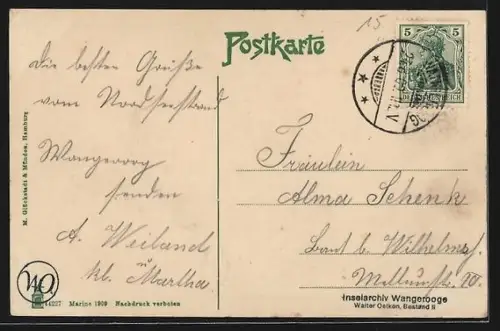 15
Postkarte
5 5
DEUTSCHES REICH
Die besten Grüße
vom Nordseestrand
Wangeroog
senden
A. Weiland
u. kl. Martha
Fräulein
Alma Schenk
Bant b. Wilhelmsh.
M. Glückstadt & Münden, Hamburg
44227 Marine 1909 Nachdruck verboten
Inselarchiv Wangerooge
Walter Oetken, Bestand II